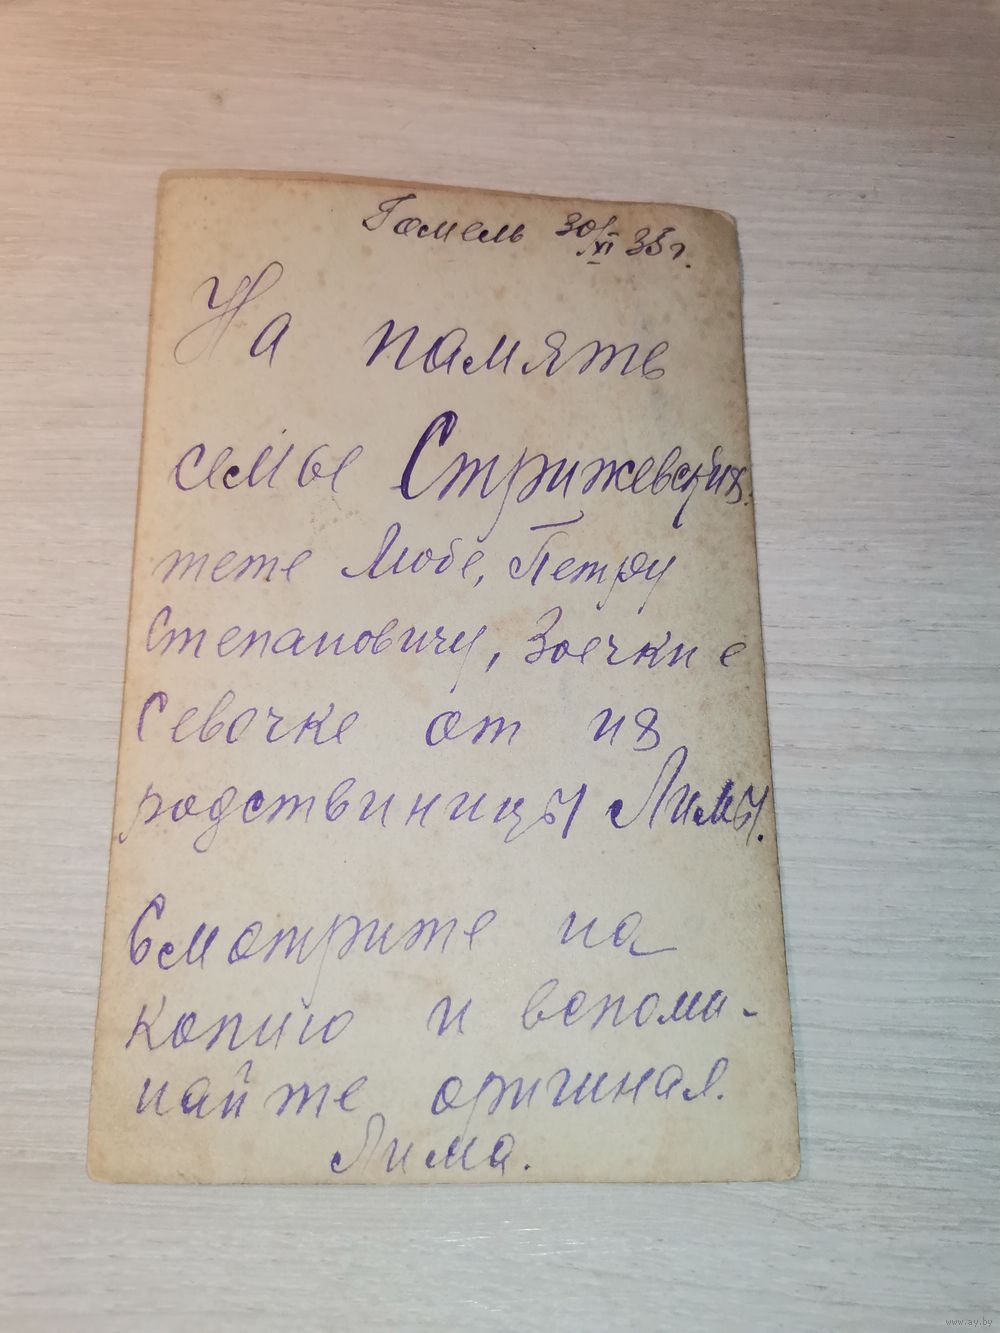 Гомель 30/XI 35г.
На память
семье Стрижевских.
тете Любе, Петру
Степановичу, Зоечки е
Севочке от их
родствиницы Лимы.
Смотрите на
копию и вспоми-
найте оригинал.
Лима.
www.ay.by